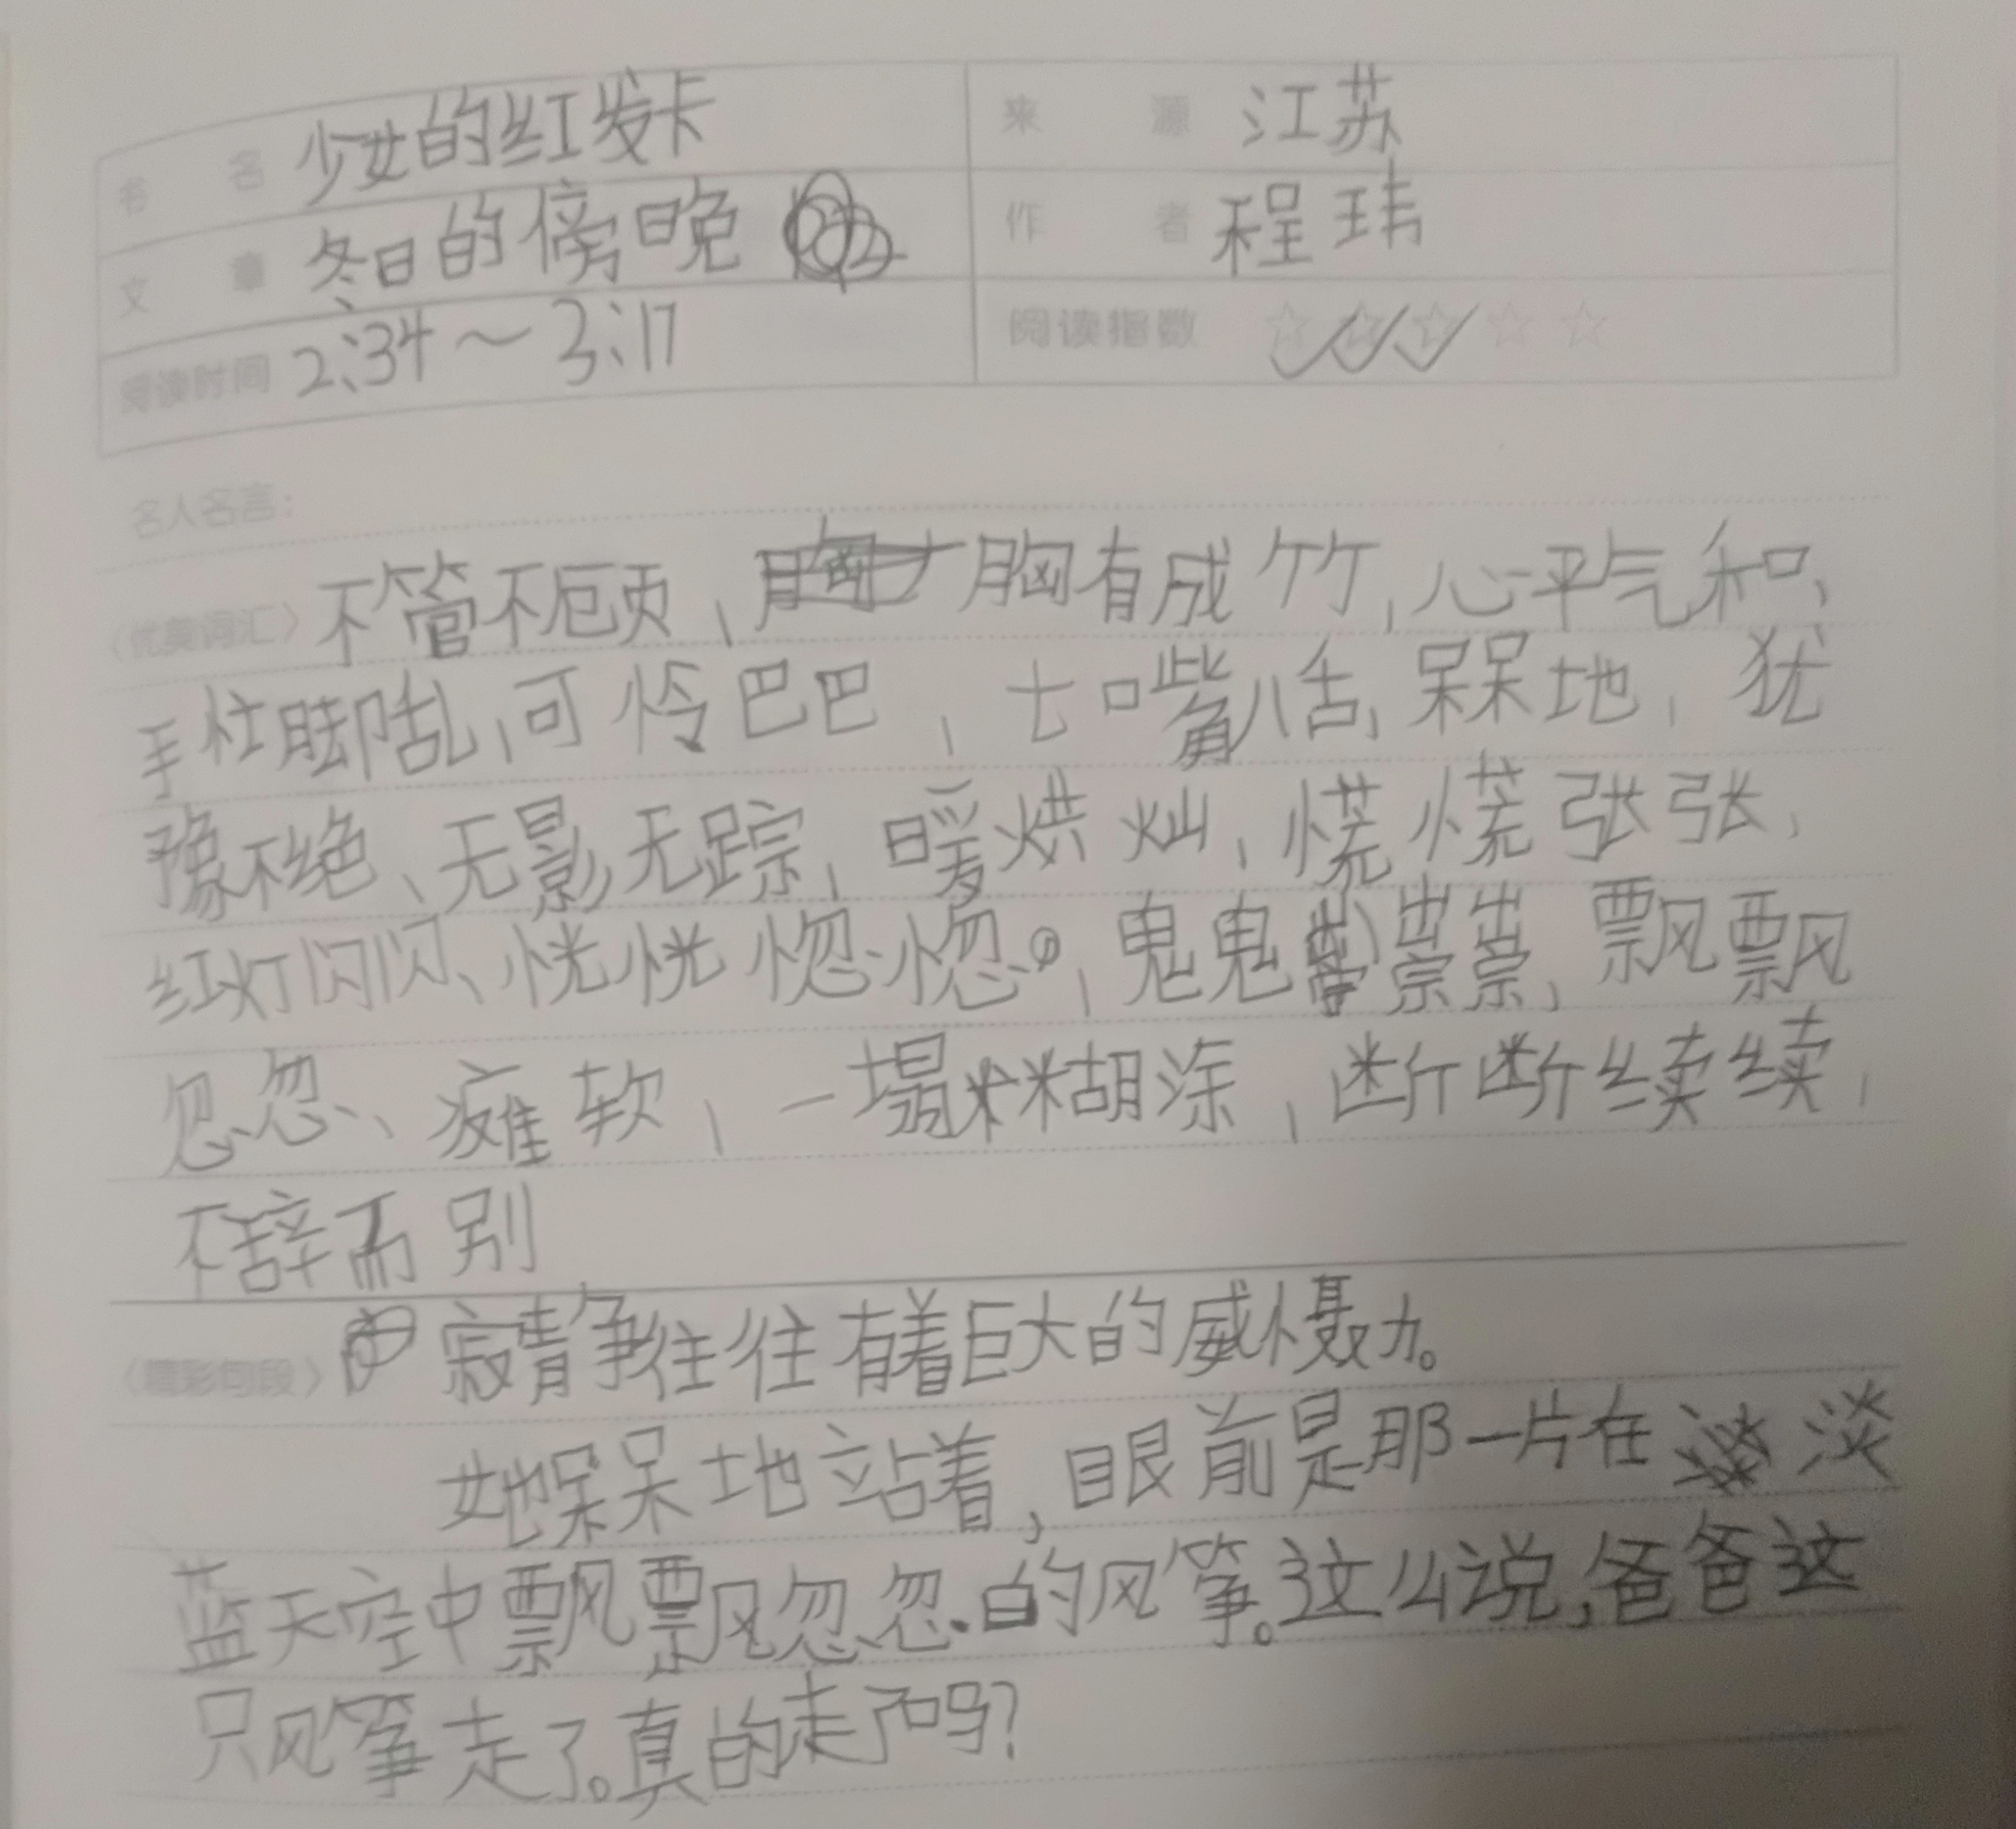 书 名 少女的红发卡 来 源 江苏
文 章 冬日的傍晚 作 者 程玮
阅读时间 2:34～3:17 阅读指数 ☆☆☆☆☆
名人名言:
〈优美词汇〉不管不顾、胸有成竹、心平气和、
手忙脚乱、可怜巴巴、七嘴八舌、呆呆地、犹
豫不绝、无影无踪、暖烘灿、慌慌张张、
红灯闪闪、恍恍惚惚、鬼鬼祟祟、飘飘
忽忽、瘫软、一塌糊涂、断断续续、
不辞而别
〈精彩句段〉寂静往往有着巨大的威慑力。
她呆呆地站着,眼前是那一片在淡
蓝天空中飘飘忽忽的风筝。这么说,爸爸这
只风筝走了。真的走了吗?